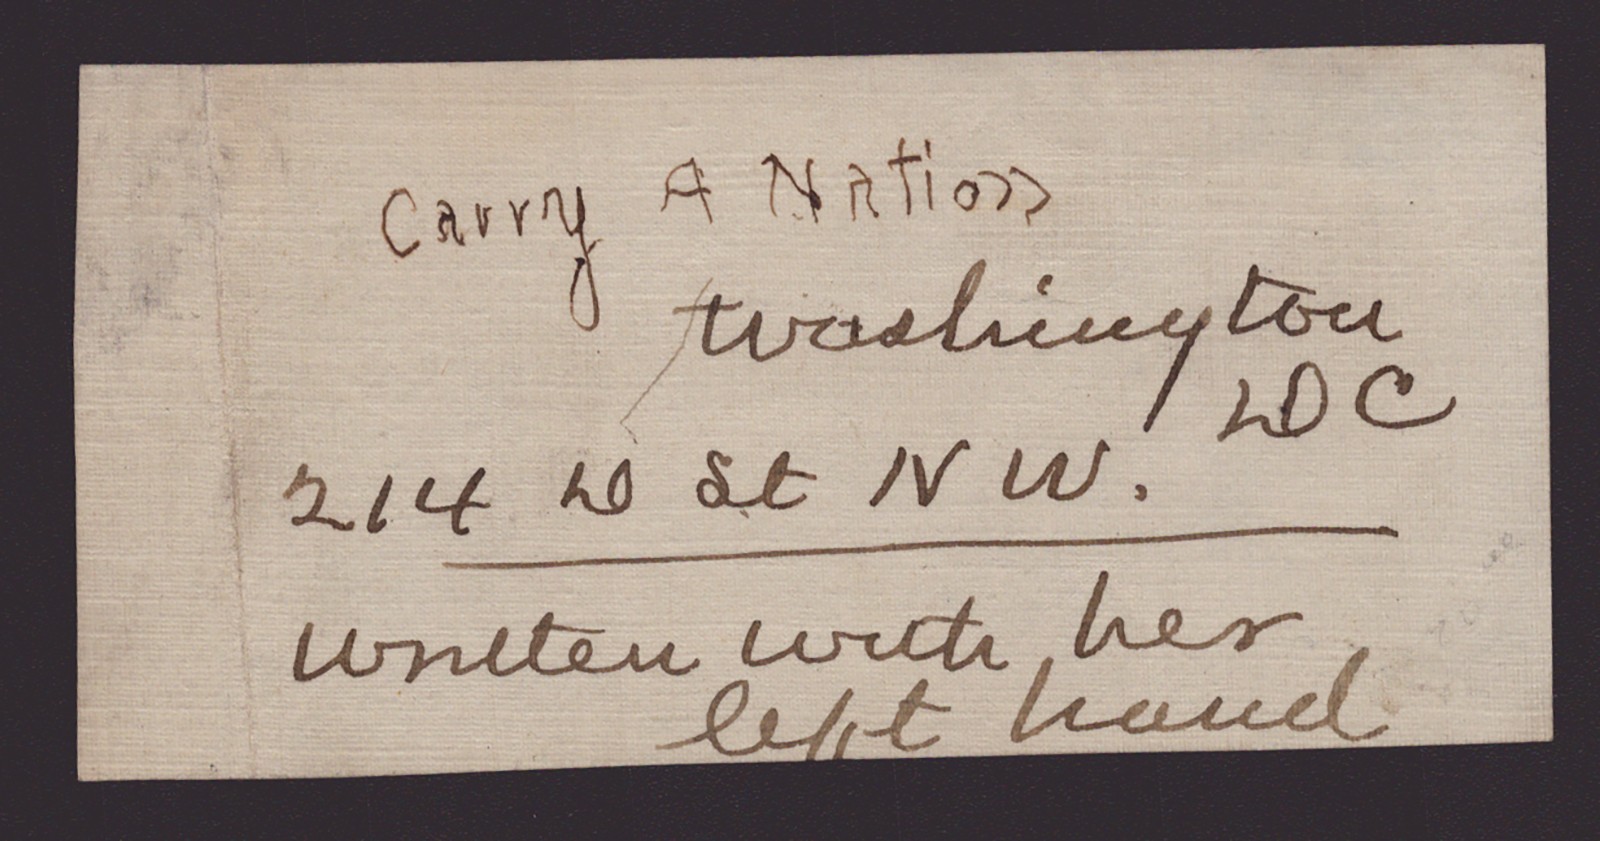 Carry A Nation
Washington
D C
214 D St N W.
Written with her
left hand